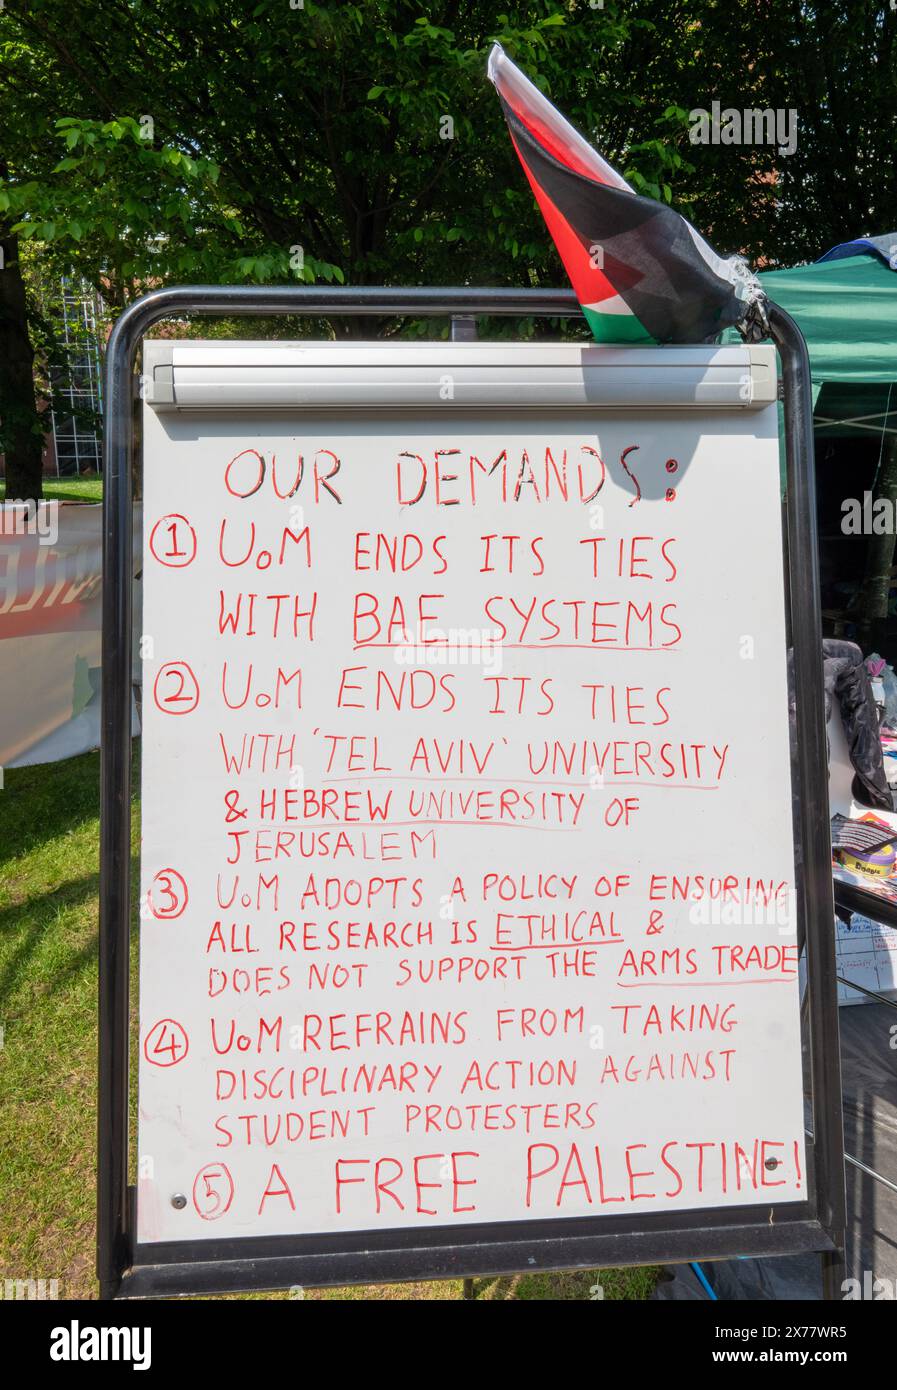 OUR DEMANDS:
① UoM ENDS ITS TIES
WITH BAE SYSTEMS
② UoM ENDS ITS TIES
WITH 'TEL AVIV' UNIVERSITY
& HEBREW UNIVERSITY OF
JERUSALEM
③ UoM ADOPTS A POLICY OF ENSURING
ALL RESEARCH IS ETHICAL &
DOES NOT SUPPORT THE ARMS TRADE
④ UoM REFRAINS FROM TAKING
DISCIPLINARY ACTION AGAINST
STUDENT PROTESTERS
⑤ A FREE PALESTINE!
alamy
alamy
Image ID: 2X77WR5
www.alamy.com